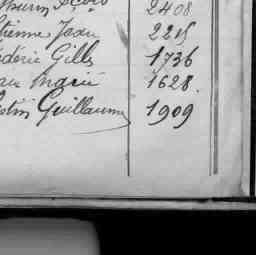 2408
tienne Jean 2215
édéric Gilles 1736
Marie 1628.
stin Guillaume 1909